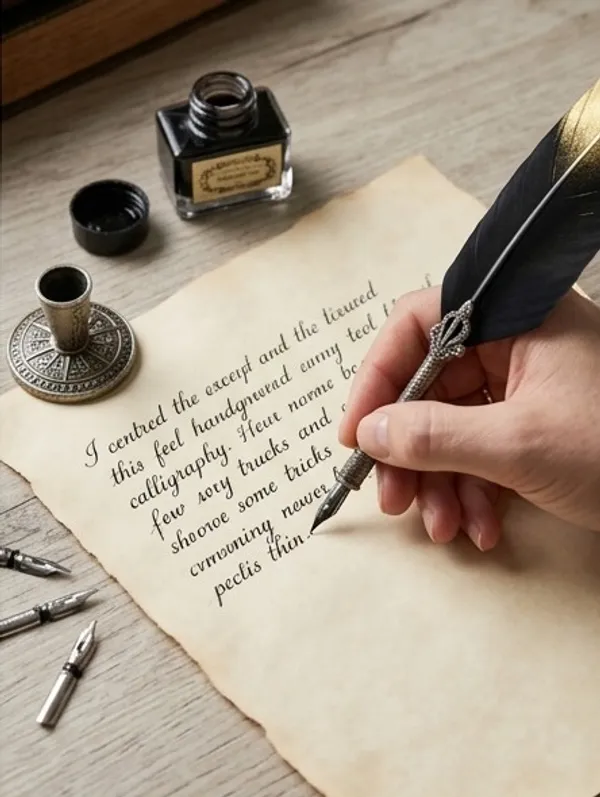 I centred the excerpt and the licured
this feel handgnored eumy teol
calligraphy. Heur norme be
few sory trucks and
shoove some tricks
cmwuning newer
pectis thin.